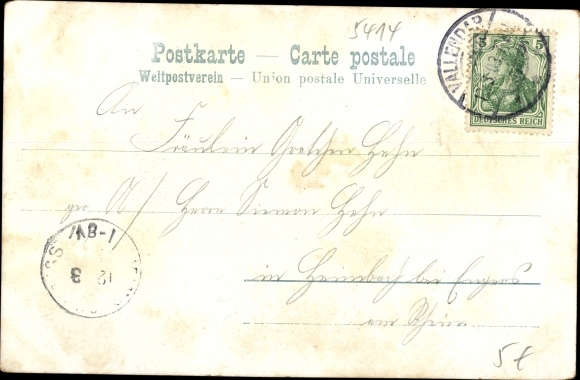 5414
Postkarte — Carte postale
Weltpostverein — Union postale Universelle
VALLENDAR
5 5
DEUTSCHES REICH
An
Fräulein Gretchen Hehn
per A/ Herrn Simon Hehn
in Heimbach bei Engers
am Rhein
12 3
5€